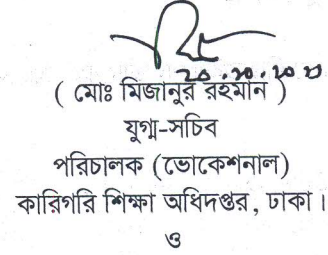 ( মোঃ মিজানুর রহমান )
যুগ্ম-সচিব
পরিচালক (ভোকেশনাল)
কারিগরি শিক্ষা অধিদপ্তর, ঢাকা।
ও